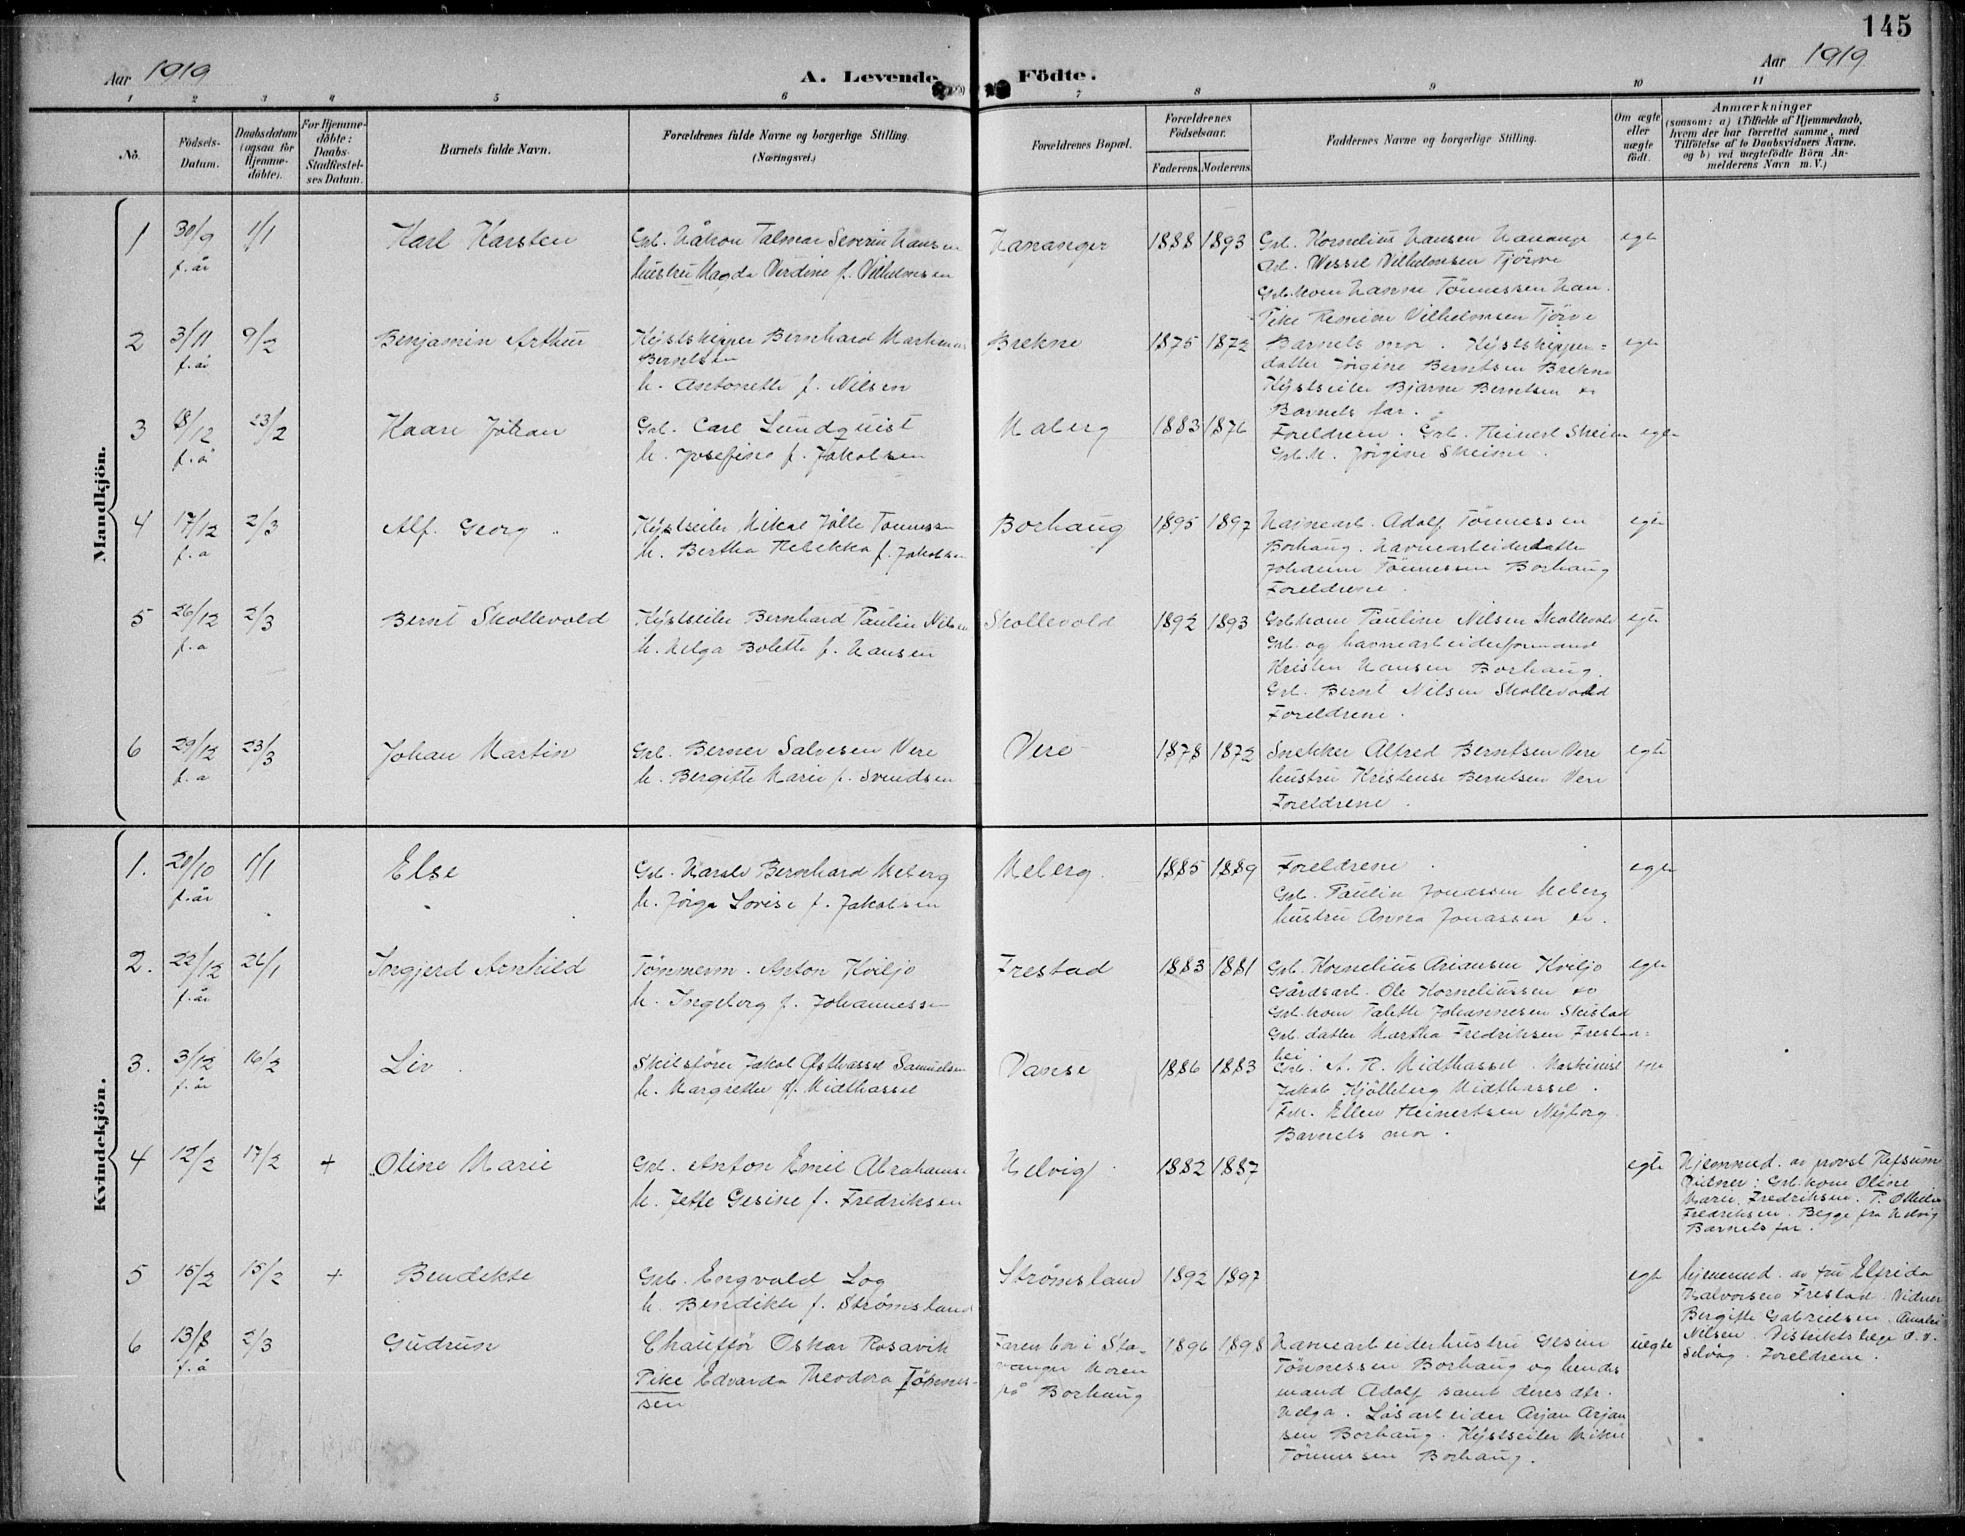 145
Aar 1919
A. Levende Födte.
Aar 1919
1 2 3 4 5 6 7 8 9 10 11
No.
Födsels-Datum.
Daabsdatum (ogsaa for Hjemmedöbte).
For Hjemmedöbte: Daabs-Stadfæstelses Datum.
Barnets fulde Navn.
Forældrenes fulde Navne og borgerlige Stilling. (Næringsvei.)
Forældrenes Bopæl.
Forældrenes Födselsaar.
Faderens. Moderens.
Faddernes Navne og borgerlige Stilling.
Om ægte eller uægte födt.
Anmærkninger (saasom: a) i Tilfælde af Hjemmedaab, hvem der har forrettet samme, med Tilföielse af to Daabsvidners Navne, og b) ved uægtefödte Börn Anmelderens Navn m. V.)
Mandkjön.
1 30/9 f. år 1/1 Karl Karsten
Grb. Håkon Talmar Severin Hansen
hustru Magda Verdine f. Vilhelmsen
Hananger 1888 1893
Grb. Kornelius Hansen Hanange
Arb. Wessel Vilhelmsen Tjörve
Grb. kone Hanne Tönnessen Han.
Pike Remine Vilhelmsen Tjörve
egte
2 3/11 f. år 9/2 Benjamin Arthur
Kystskipper Bernhard
Berntsen
h. Antonette f. Nilsen
Brekne 1875 1872
Barnets mor. Kystskipper-
datter Jørgine Berntsen Brekne
Kystseiler Bjarne Berntsen
Barnets far.
egte
3 8/12 f. å 23/2 Kaare Johan
Grb. Carl Lundquist
h. Josefine f. Jakobsen
Maberg 1883 1876
Foreldrene. Grb. Reinert Skeime
Grb. h. Jörgine Skeime.
egte
4 17/12 f. a 2/3 Alf. Georg
Kystseiler Mikal Tönnessen
h. Bertha Rebekka f. Jakobsen
Borhaug 1895 1897
Havnearb. Adolf Tönnessen
Borhaug. Havnearbeiderdatter
Johanne Tönnessen Borhaug
Foreldrene.
egte
5 26/12 f. a 2/3 Bernt Skollevold
Kystseiler Bernhard Paulin Nilsen
h. Helga Bolette f. Hansen
Skollevold 1892 1893
Grbkone Pauline Nilsen Skollevold
Grb. og havnearbeiderformand
Kristen Hansen Borhaug.
Grb. Bernt Nilsen Skollevold
Foreldrene.
egte
6 29/12 f. a 23/3 Johan Martin
Grb. Berner Salvesen Vere
h. Bergitte Marie f. Svendsen
Vere 1878 1872
Snekker Alfred Berntsen Vere
hustru Kristense Berntsen Vere
Foreldrene.
egte
Kvindekjön.
1. 20/10 f. år 1/1 Else
Grb. Harald Bernhard Meberg
h. Jörga Lovise f. Jakobsen
Meberg. 1885 1889
Foreldrene.
Grb. Paulin Jonassen Meberg
hustru Anna Jonassen
egte
2. 22/12 f. år 26/1 Ingjerd Arnhild
Tömmerm. Anton Kviljo
h. Ingeborg f. Johannessen
Frestad 1883 1881
Grb. Kornelius Ariansen Kviljo
Gårdsarb. Ole Korneliussen
Grb. kone Talette Johannesen Skeistad
Grb. datter Martha Fredriksen Frestad-
hei.
egte
3. 3/12 f. år 16/2 Liv
Skibsförer Jakob Østhassel Samuelsen
h. Margrethe f. Midthassel
Vanse 1886 1883
Grb. A. R. Midthassel. Maskinist
Jakob Kjölleberg Midthassel.
Frk. Ellen Reinertsen Nyborg.
Barnets mor.
egte
4 12/2 17/2 + Oline Marie
Grb. Anton Emil Abrahams.
h. Jette Gesine f. Fredriksen
Helvig 1882 1887
egte
Hjemmed. av provst Refsum
Vidner: Grb. kone Oline
Marie Fredriksen. P.
Fredriksen. Begge fra Helvig
Barnets far.
5 15/2 15/2 + Bendikte
Grb. Engvald Log
h. Bendikte f. Strömsland
Strömsland 1892 1897
egte
hjemmed. av fru Elfrida
Halvorsen Frestad. Vidner
Bergitte Gabrielsen.
Nilsen. Distriktslege
Selvåg. Foreldrene.
6 13/8 f. å 2/3 Gudrun
Chaufför Oskar Rosavik
Pike Edvarda Theodora Tönnes-
sen
Faren bor i Sta-
vanger Moren
på Borhaug
1896 1898
Havnearbeiderhustru Gesine
Tönnessen Borhaug og hendes
mand Adolf samt deres dtr.
Helga. Lösarbeider Arjan Arjan
sen Borhaug. Kystseiler Mikal
Tönnessen Borhaug.
uegte